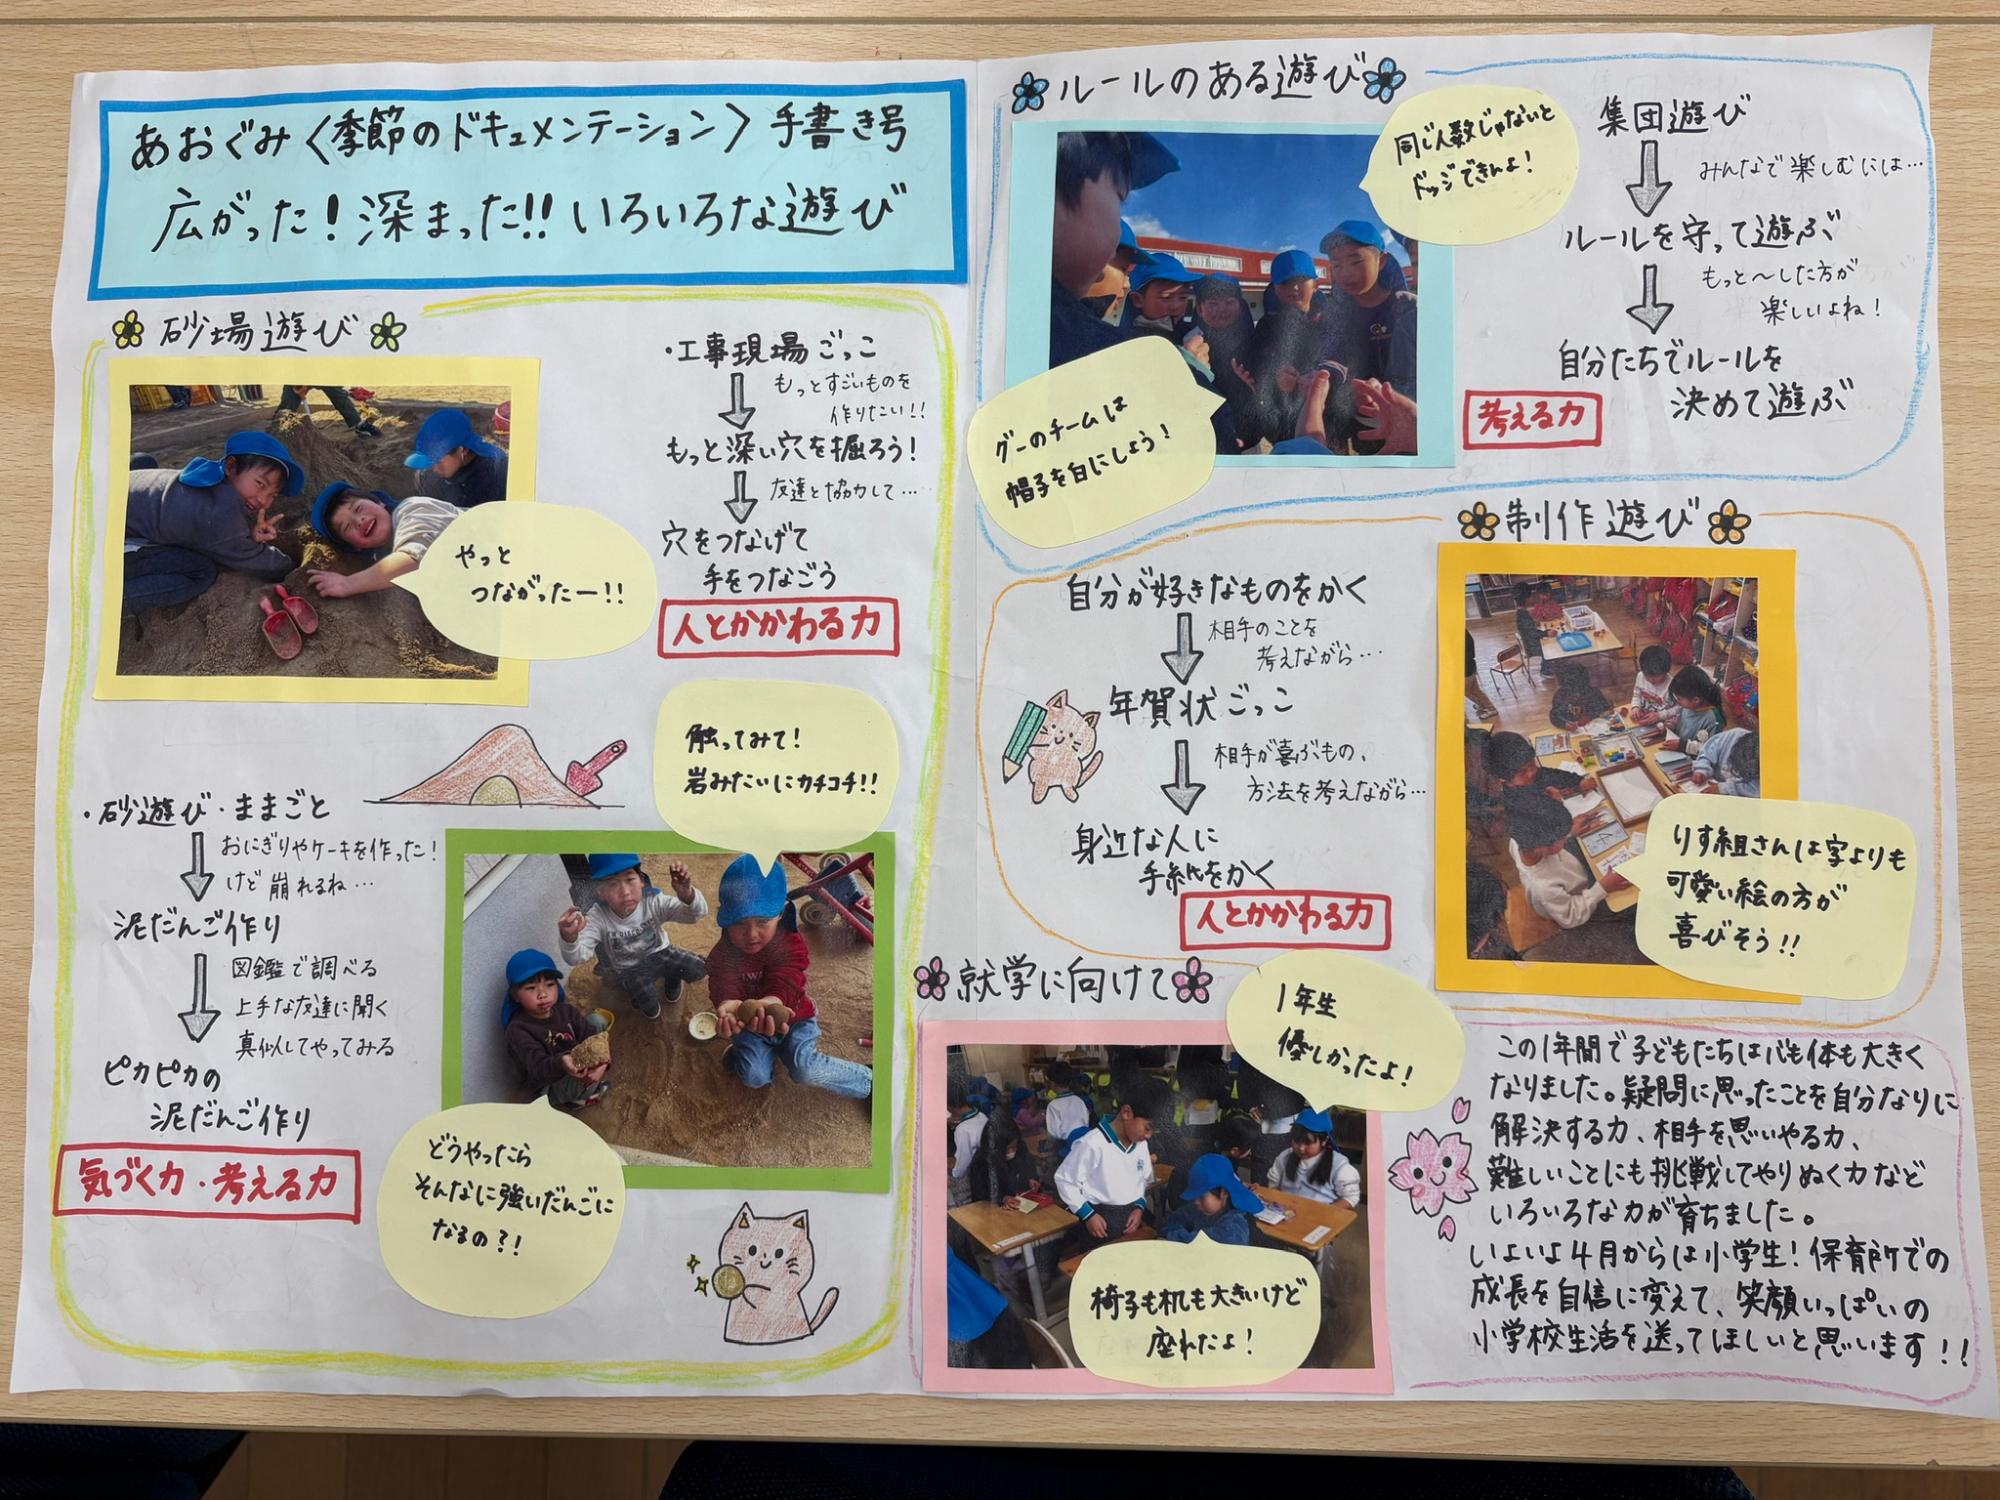 あおぐみ〈季節のドキュメンテーション〉手書き号
広がった!深まった!!いろいろな遊び
砂場遊び
・工事現場ごっこ
もっとすごいものを
作りたい!!
もっと深い穴を掘ろう!
友達と協力して…
穴をつなげて
手をつなごう
人とかかわる力
やっと
つながったー!!
・砂遊び・ままごと
おにぎりやケーキを作った!
けど崩れるね…
泥だんご作り
図鑑で調べる
上手な友達に聞く
真似してやってみる
ピカピカの
泥だんご作り
気づく力・考える力
触ってみて!
岩みたいにカチコチ!!
どうやったら
そんなに強いだんごに
なるの?!
ルールのある遊び
同じ人数じゃないと
ドッジできんよ!
グーのチームは
帽子を白にしよう!
集団遊び
みんなで楽しむには…
ルールを守って遊ぶ
もっと〜した方が
楽しいよね!
自分たちでルールを
決めて遊ぶ
考える力
制作遊び
自分が好きなものをかく
相手のことを
考えながら…
年賀状ごっこ
相手が喜ぶもの、
方法を考えながら…
身近な人に
手紙をかく
人とかかわる力
りす組さんは字よりも
可愛い絵の方が
喜びそう!!
就学に向けて
1年生
優しかったよ!
椅子も机も大きいけど
座れたよ!
この1年間で子どもたちは心も体も大きく
なりました。疑問に思ったことを自分なりに
解決する力、相手を思いやる力、
難しいことにも挑戦してやりぬく力など
いろいろな力が育ちました。
いよいよ4月からは小学生!保育所での
成長を自信に変えて、笑顔いっぱいの
小学校生活を送ってほしいと思います!!